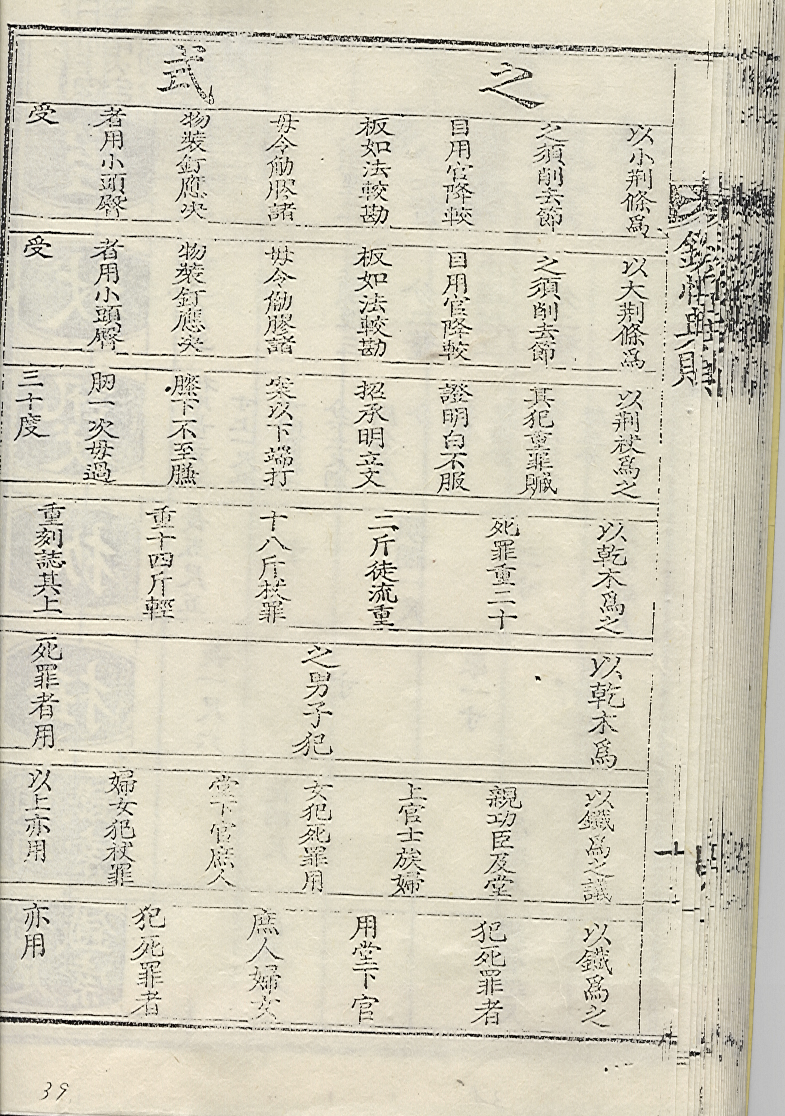 欽恤典則
之
式
以小荊條爲
之須削去節
目用官降較
板如法較勘
毋令觔膠諸
物裝釘應决
者用小頭臀
受
以大荊條爲
之須削去節
目用官降較
板如法較勘
毋令觔膠諸
物裝釘應决
者用小頭臀
受
以荊杖爲之
其犯重罪贓
證明白不服
招承明立文
案以下端打
膝下不至臁
肕一次毋過
三十度
以乾木爲之
死罪重二十
二斤徒流重
十八斤杖罪
重十四斤輕
重刻誌其上
以乾木爲
之男子犯
死罪者用
以鐵爲之議
親功臣及堂
上官士族婦
女犯死罪用
堂下官庶人
婦女犯杖罪
以上亦用
以鐵爲之
犯死罪者
用堂下官
庶人婦女
犯死罪者
亦用
39